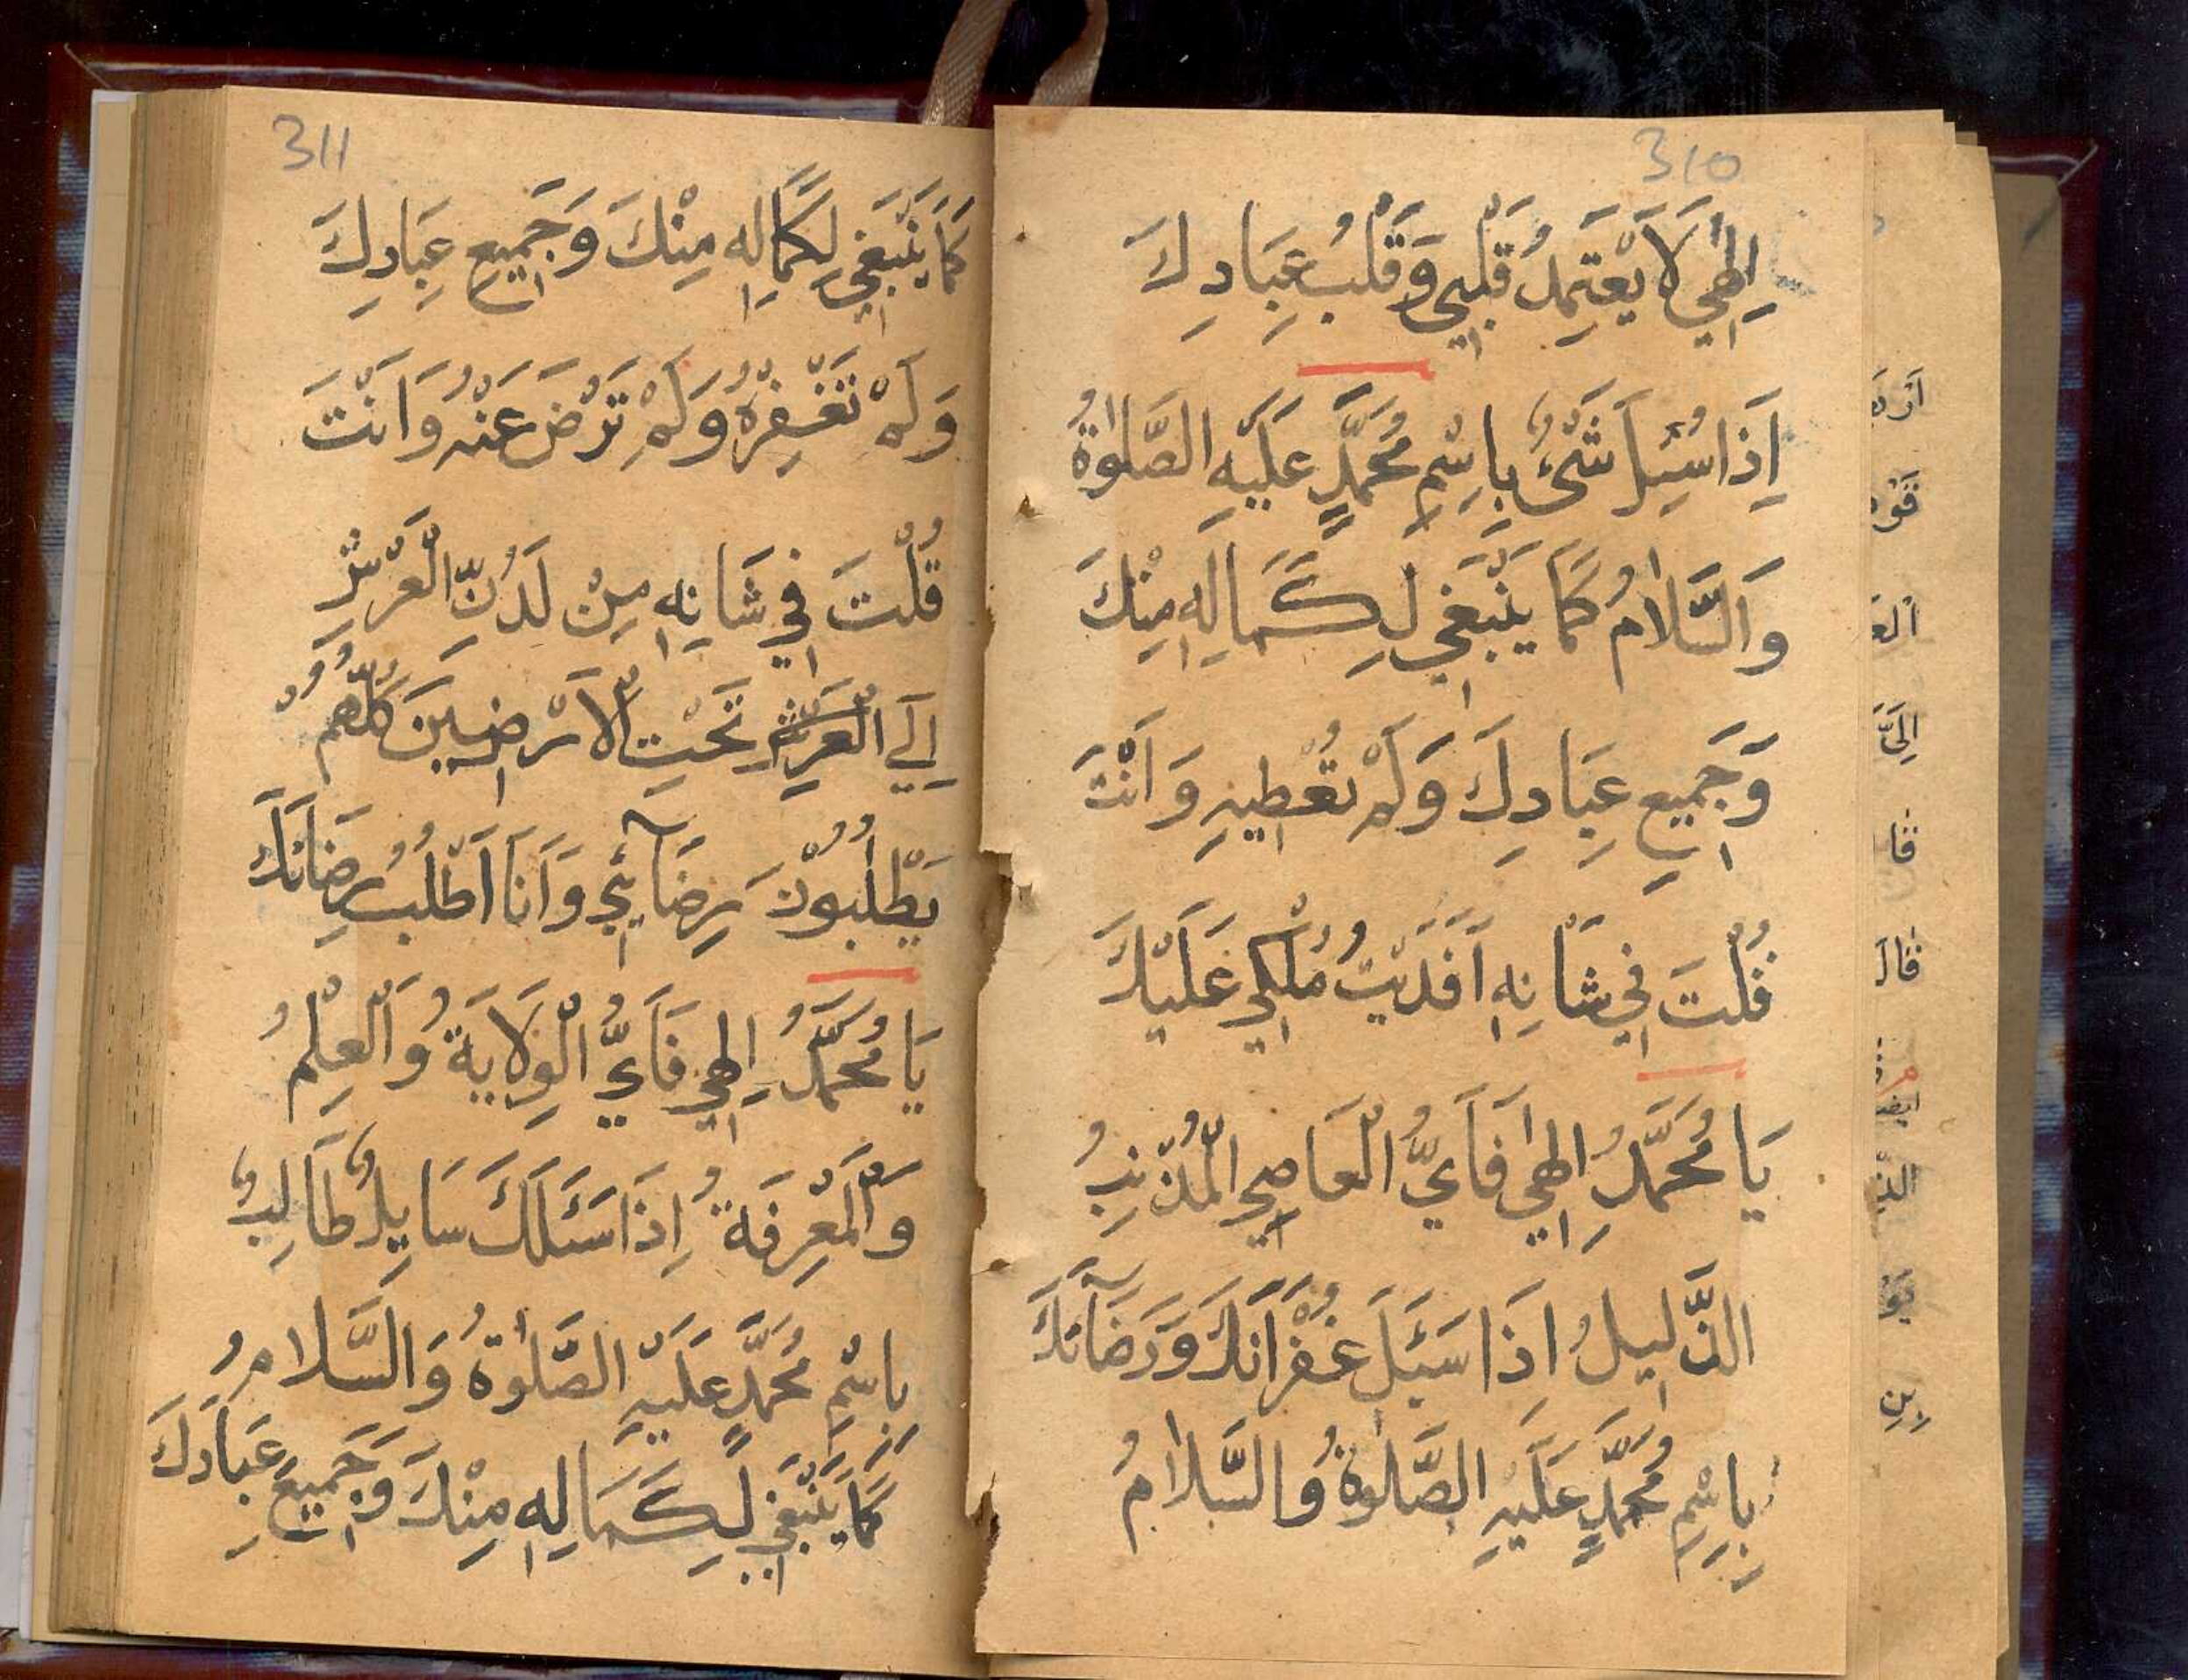 310
اِلٰهِي لَا يَعْتَمِدُ قَلْبِي وَقَلْبُ عِبَادِكَ
اِذَا سُئِلَ شَیْءٌ بِاسْمِ مُحَمَّدٍ عَلَيْهِ الصَّلٰوةُ
وَالسَّلَامُ كَمَا يَنْبَغِي لِكَمَالِهِ مِنْكَ
وَجَمِيعِ عِبَادِكَ وَلَمْ تُعْطِيهِ وَاَنْتَ
قُلْتَ فِي شَانِهِ اَفَدَيْتُ مُلْكِي عَلَيْكَ
يَا مُحَمَّدُ اِلٰهِي فَاَيُّ الْعَاصِي الْمُذْنِبُ
الذَّلِيلُ اِذَا سَئَلَ غُفْرَانَكَ وَرَضَآئَكَ
بِاسْمِ مُحَمَّدٍ عَلَيْهِ الصَّلٰوةُ وَالسَّلَامُ
311
كَمَا يَنْبَغِي لِكَمَالِهِ مِنْكَ وَجَمِيعِ عِبَادِكَ
وَلَمْ تَغْفِرْهُ وَلَمْ تَرْضَ عَنْهُ وَاَنْتَ
قُلْتَ فِي شَانِهِ مِنْ لَدُنِّ الْعَرْشِ
اِلَي تَحْتِ الْاَرْضِينَ كُلُّهُمْ
يَطْلُبُونَ رِضَآئِي وَاَنَا اَطْلُبُ رِضَائَكَ
يَا مُحَمَّدُ اِلٰهِي فَاَيُّ الْوِلَايَةُ وَالْعِلْمُ
وَالْمَعْرِفَةُ اِذَا سَئَلَكَ سَايِلٌ طَالِبٌ
بِاسْمِ مُحَمَّدٍ عَلَيْهِ الصَّلٰوةُ وَالسَّلَامُ
كَمَا يَنْبَغِي لِكَمَالِهِ مِنْكَ وَجَمِيعِ عِبَادِكَ